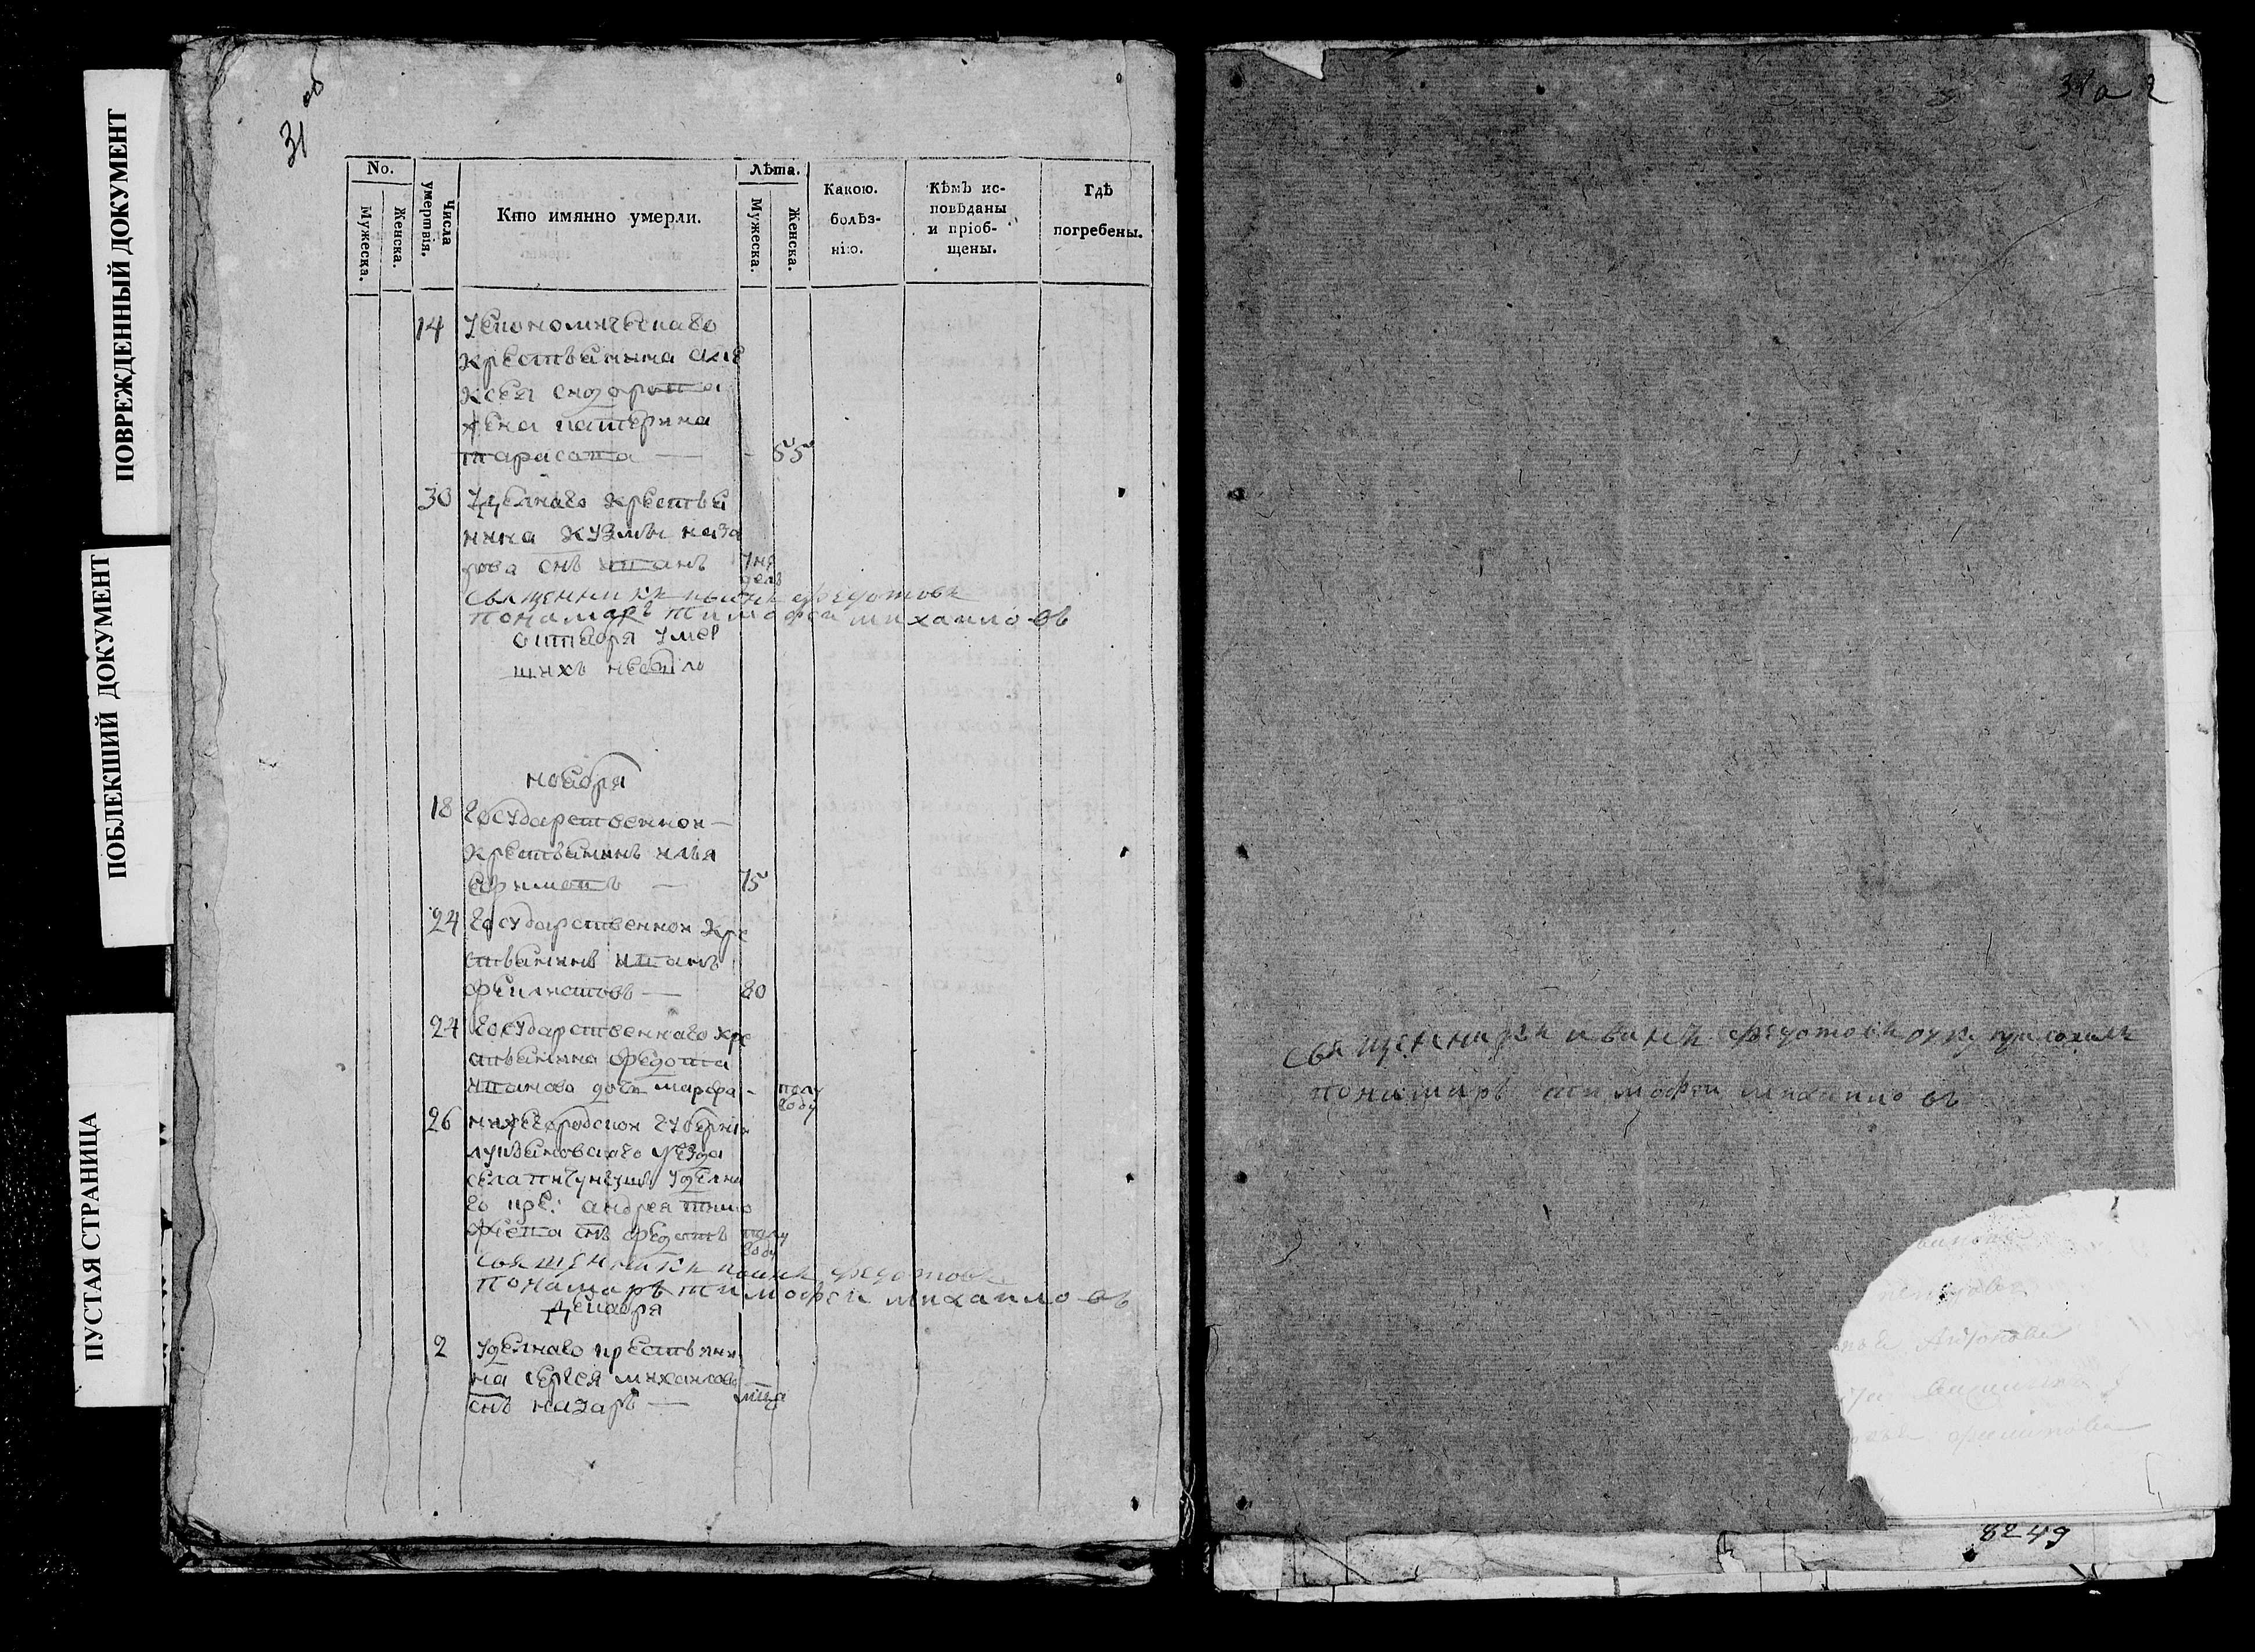 ПОВРЕЖДЕННЫЙ ДОКУМЕНТ
ПОБЛЕКШИЙ ДОКУМЕНТ
ПУСТАЯ СТРАНИЦА
31 об
No.
Мужеска.
Женска.
Числа умертвія.
Кто имянно умерли.
Лѣта.
Мужеска.
Женска.
Какою.
болѣз-
нію.
Кѣмъ ис-
повѣданы
и пріоб-
щены.
Гдѣ
погребены.
14 Уекономическаго
крестьянина Але
ксея Сидорова
жена катерина
тарасова — - 55
30 Уделнаго крестья
нина кузмы наза
рова снъ иванъ 7 не
делъ
священникъ иванъ федотовъ
понамаръ тимофеи михаиловъ
октября умер
шихъ небыло
ноября
18 государственнои
крестьянинъ илья
ефимовъ — 75
24 государственнои кре
стьянинъ иванъ
филатовъ — 80
24 государственнаго кре
стьянина федота
иванова дочь марфа - полу
году
26 нижегородскои губернии
лукьяновскаго уезда
села уделна
го кре: андрея тимо
фѣева снъ федотъ полу
году
священникъ иванъ федотовъ
понамаръ тимофеи михаиловъ
декабря
2 уделнаго крестьяни
на сергея михаилова
снъ назаръ — мца
31а
священникъ иванъ федотовъ руку приложилъ
понамаръ тимофеи михаиловъ
Антонова
филипова
8249